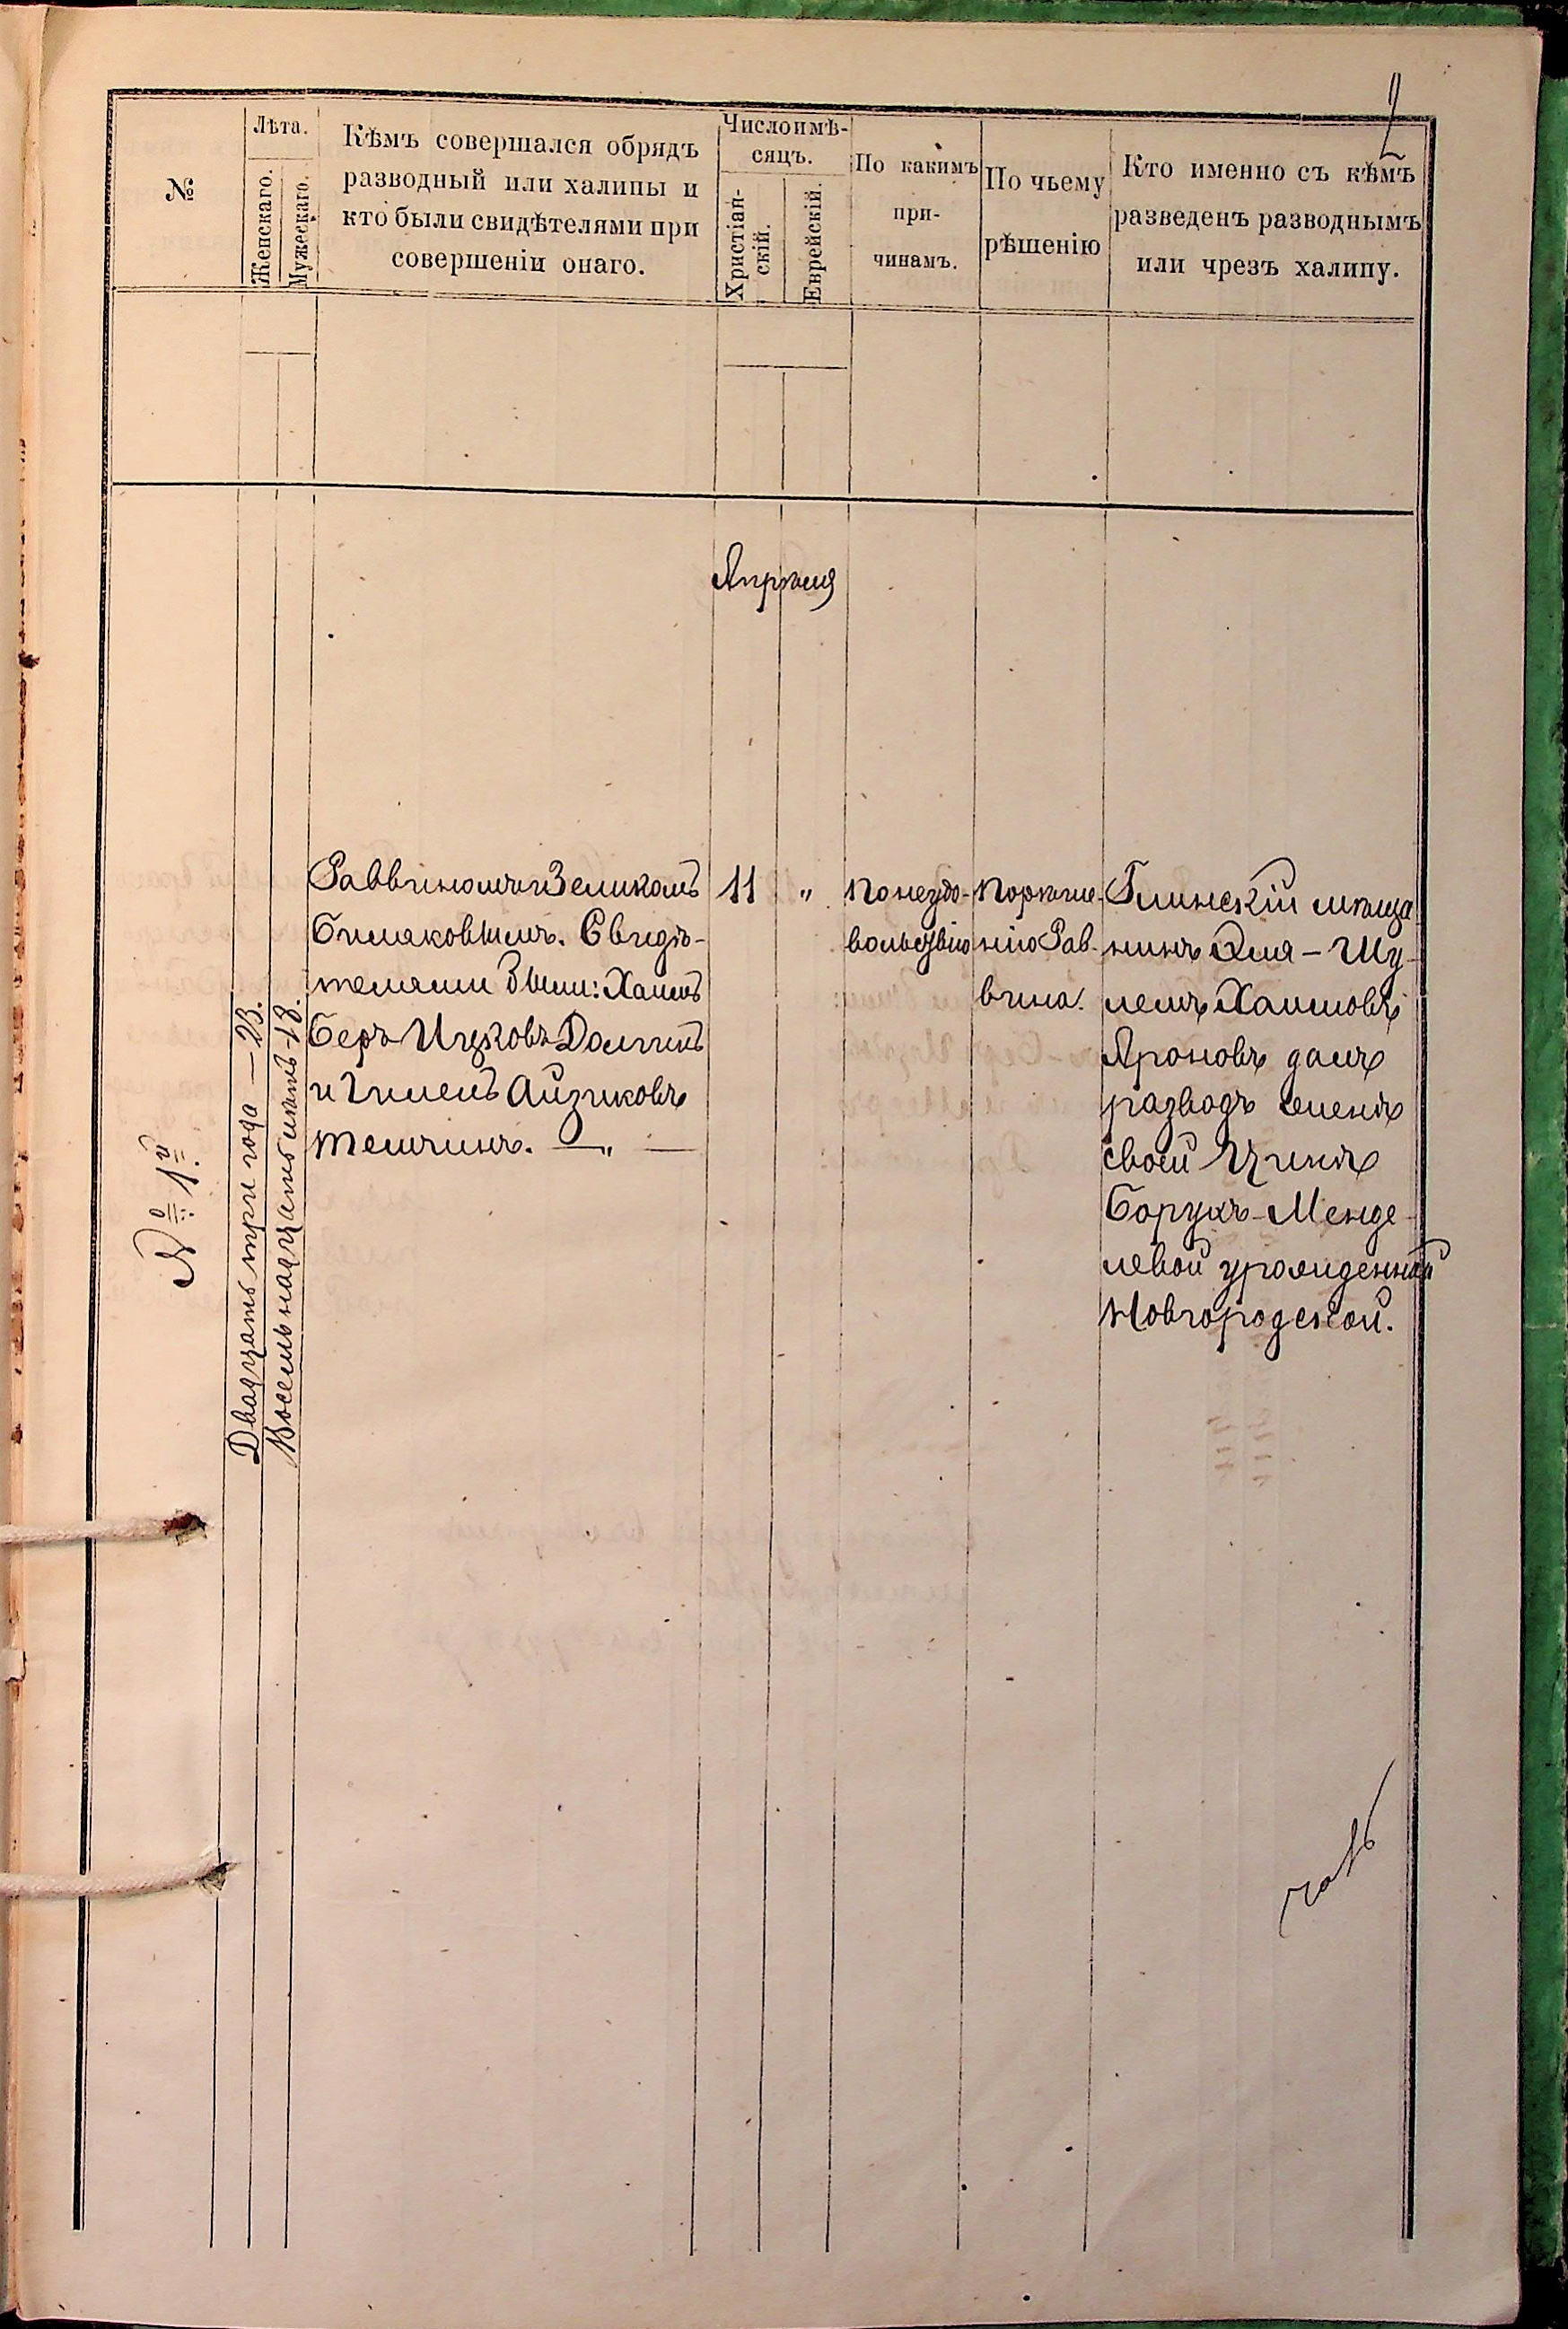 2
№
Лѣта.
Женскаго.
Мужескаго.
Кѣмъ совершался обрядъ
разводный или халицы и
кто были свидѣтелями при
совершеніи онаго.
Число и мѣ-
сяцъ.
Христіан-
скій.
Еврейскій.
По какимъ
при-
чинамъ.
По чьему
рѣшенію
Кто именно съ кѣмъ
разведенъ разводнымъ
или чрезъ халицу.
Апрѣля
№ 1й
Двадцать три года — 23.
Восемьнадцать лѣтъ — 18.
Раввиномъ Зеликомъ
Свидѣ-
телями были: Хаимъ
Беръ Ицковъ Долгинъ
и Гилелъ Айзиковъ
Темчинъ. — „ —
11
„
по неудо-
вольствію
по рѣше-
нію Рав-
вина.
Глинскій мѣща-
нинъ Эля - Шу-
лемъ Хаимовъ
Ароновъ далъ
разводъ женѣ
своей Цинѣ
Борухъ-Менде-
левой урожденной
Новгородской.